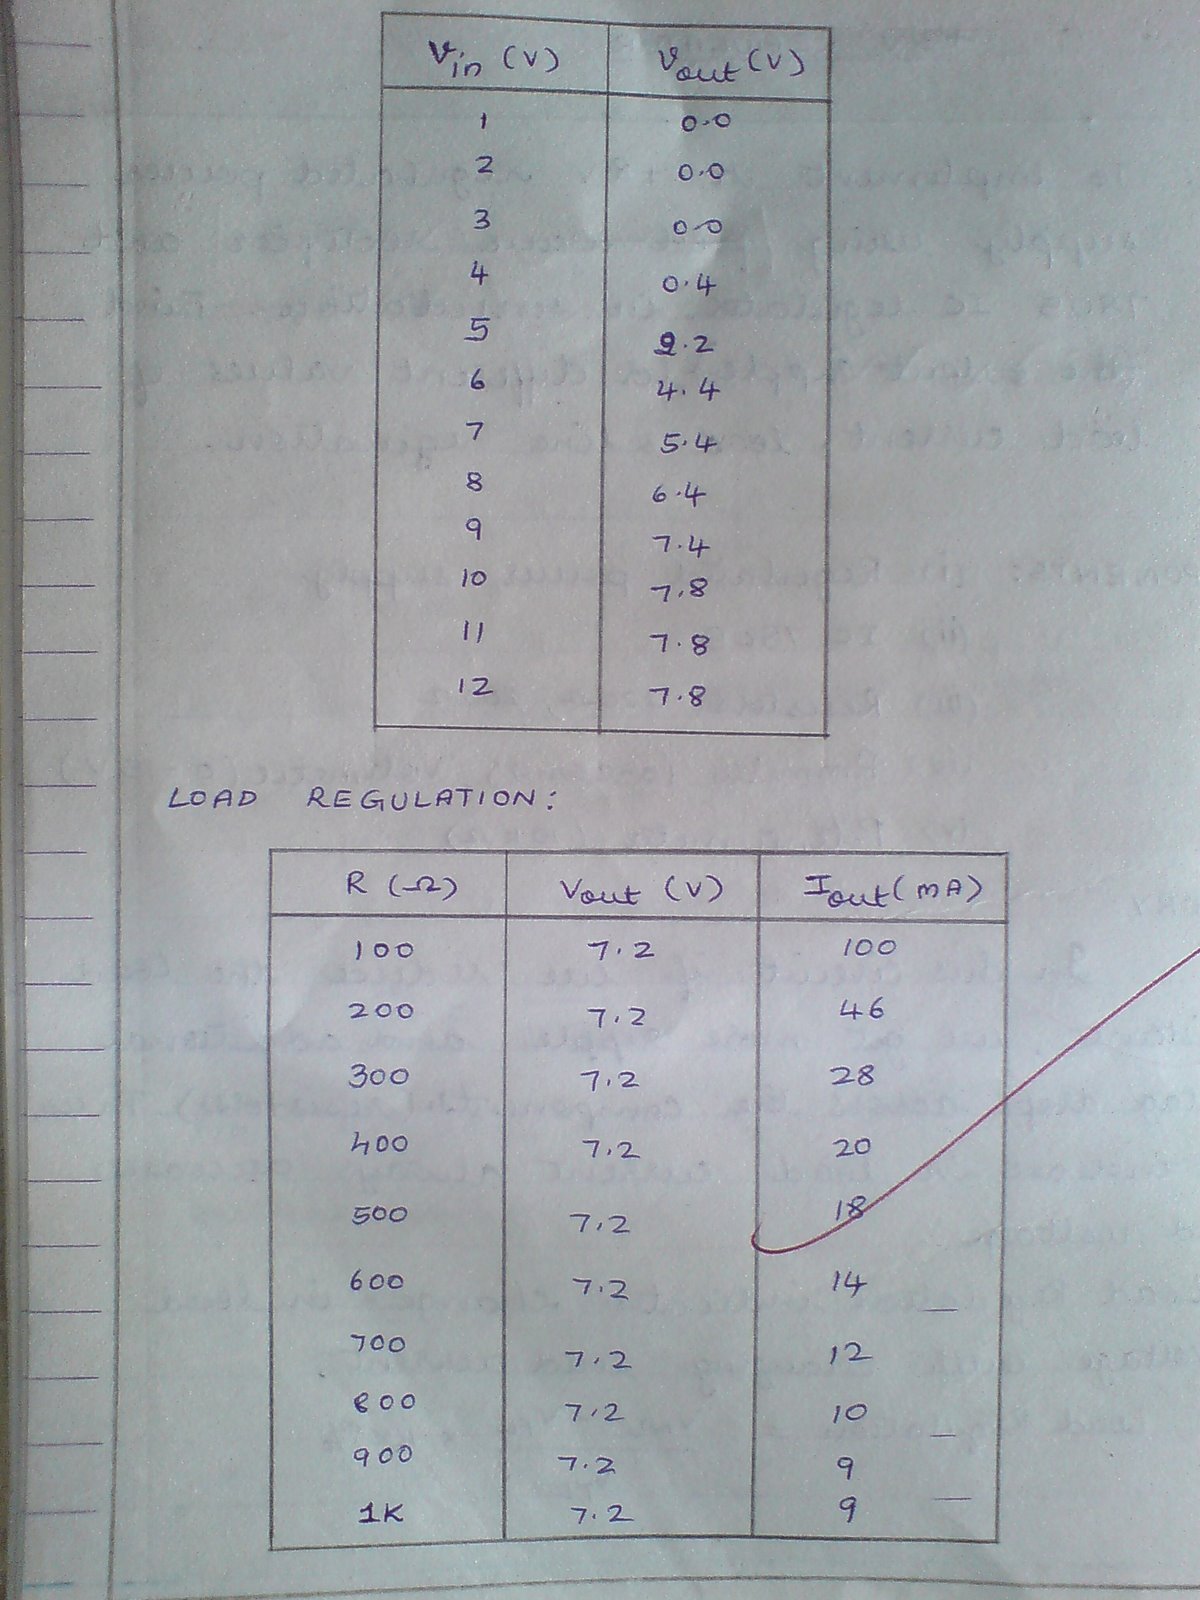 Vin (V) Vout (V)
1 0.0
2 0.0
3 0.0
4 0.4
5 2.2
6 4.4
7 5.4
8 6.4
9 7.4
10 7.8
11 7.8
12 7.8
LOAD REGULATION:
R (Ω) Vout (V) Iout (mA)
100 7.2 100
200 7.2 46
300 7.2 28
400 7.2 20
500 7.2 18
600 7.2 14
700 7.2 12
800 7.2 10
900 7.2 9
1K 7.2 9